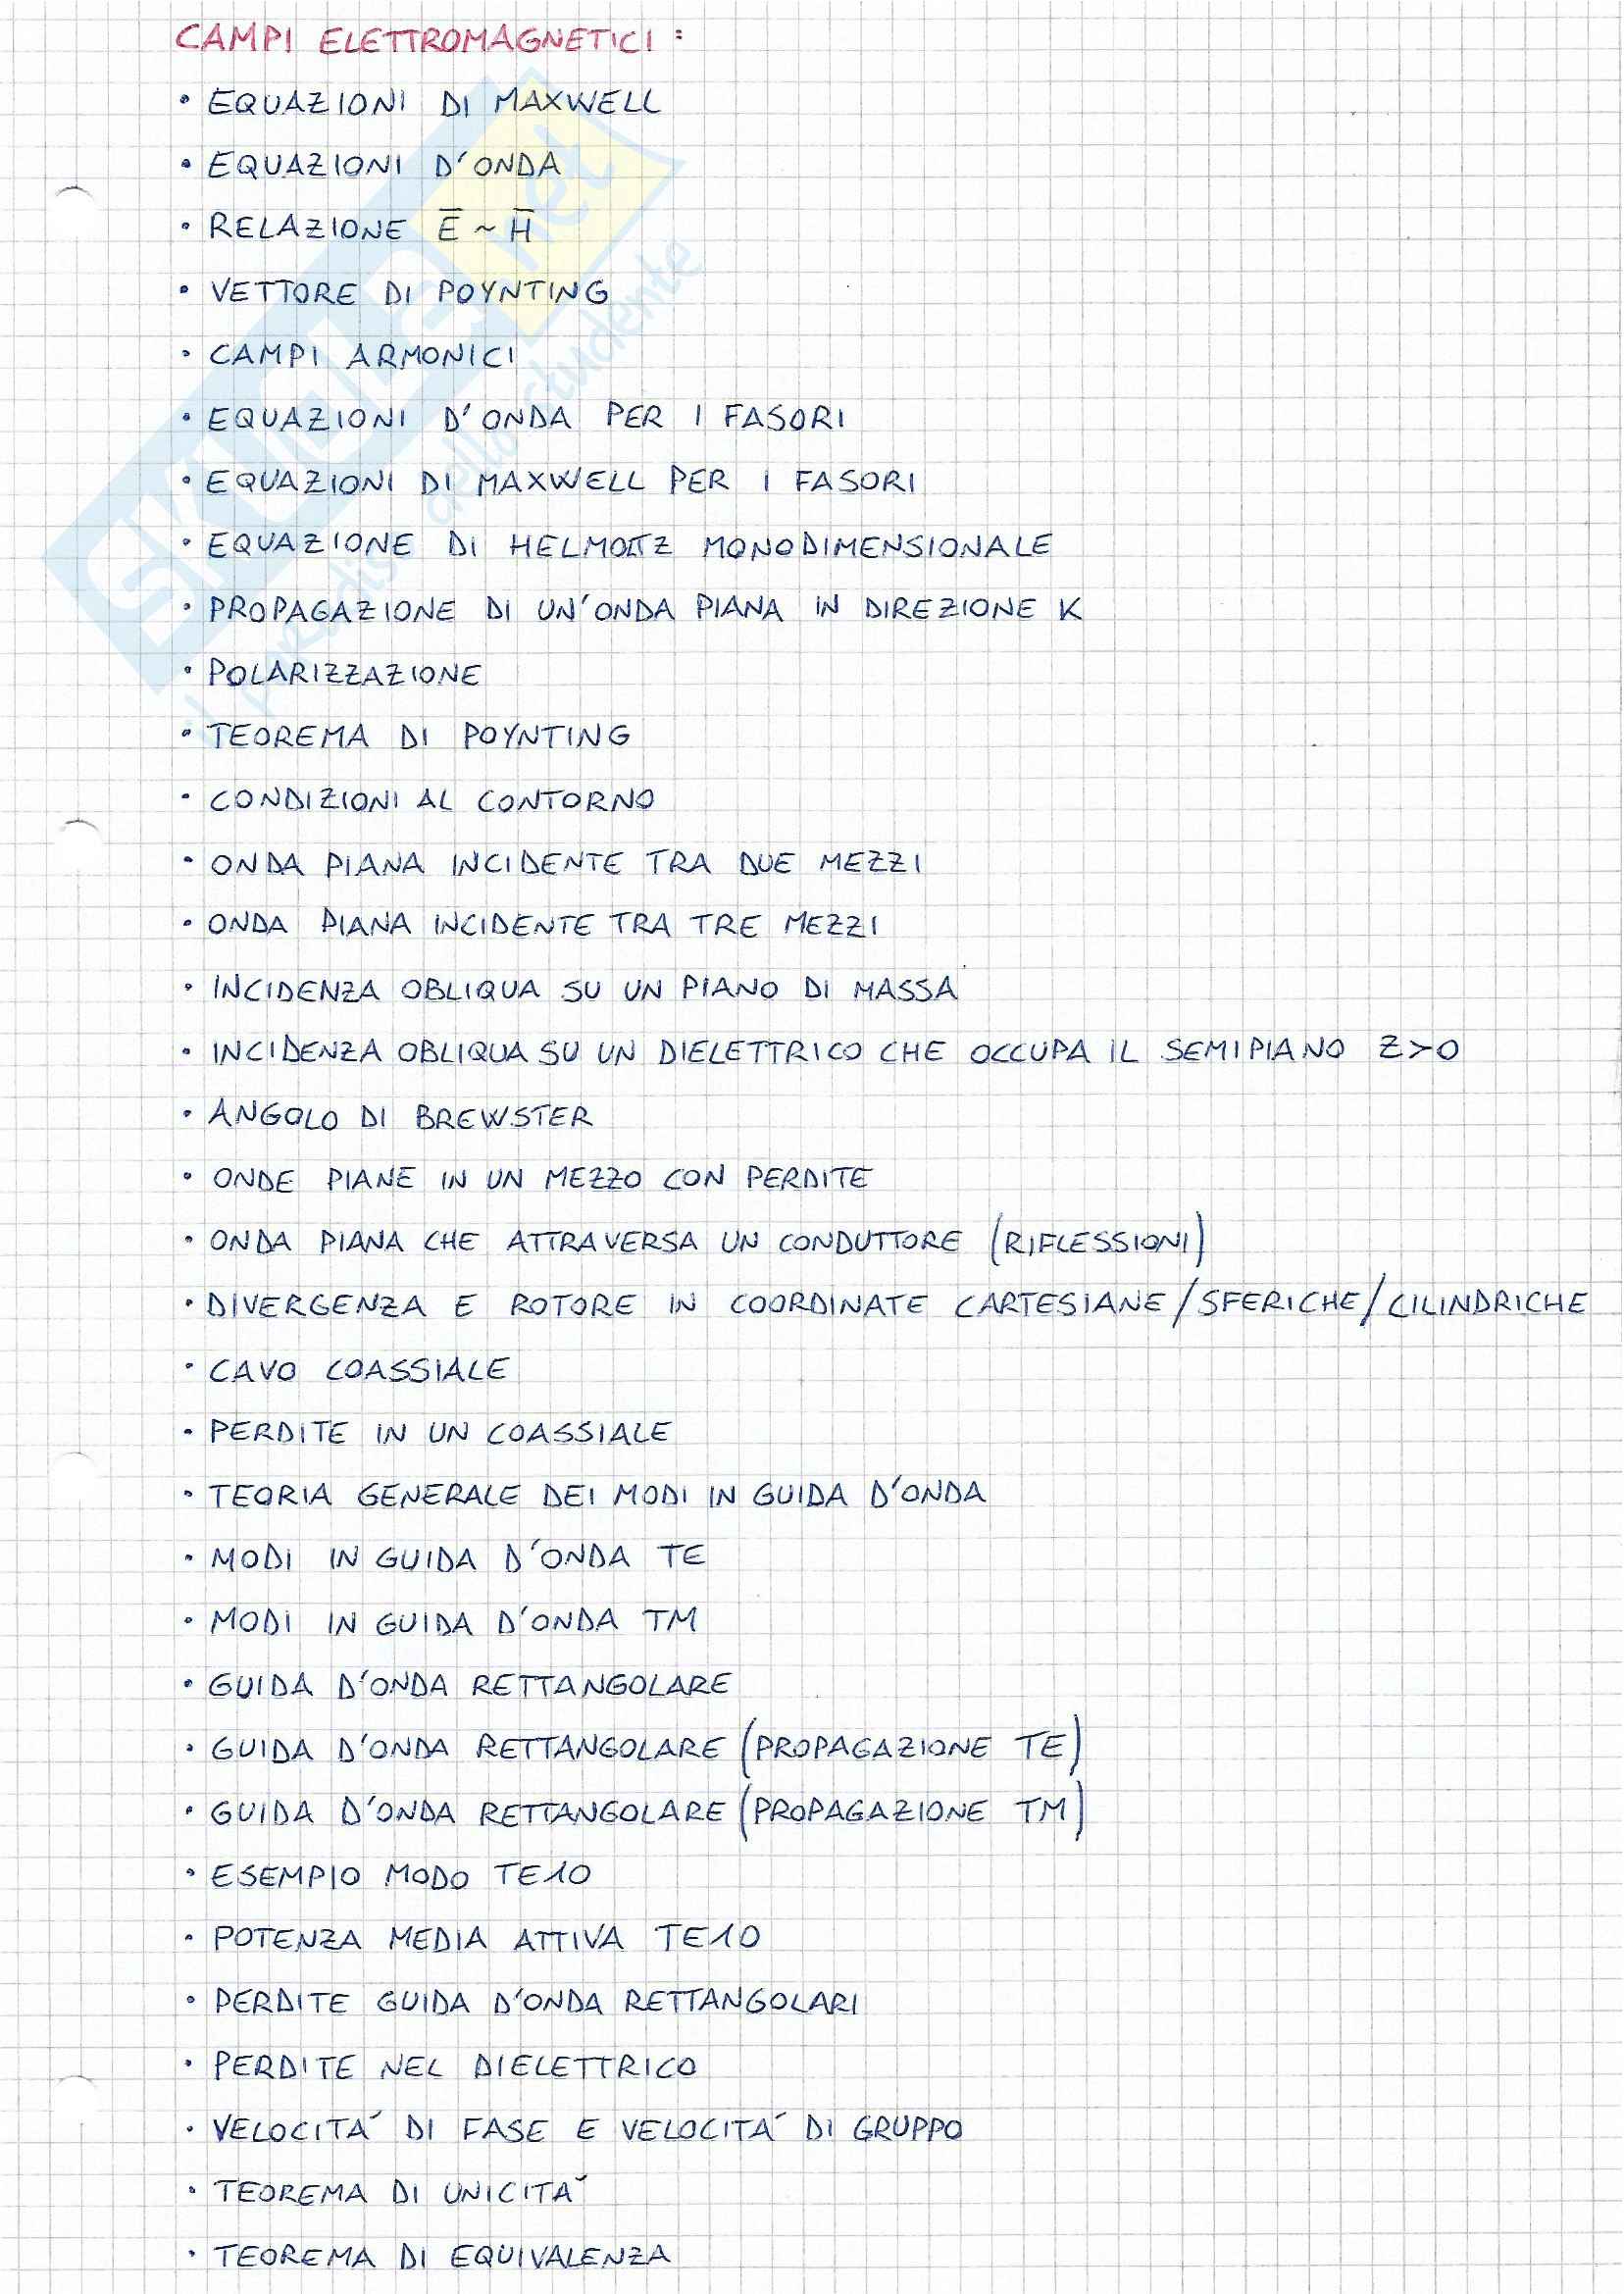 CAMPI ELETTROMAGNETICI :
• EQUAZIONI DI MAXWELL
• EQUAZIONI D'ONDA
• RELAZIONE Ē ~ H̄
• VETTORE DI POYNTING
• CAMPI ARMONICI
• EQUAZIONI D'ONDA PER I FASORI
• EQUAZIONI DI MAXWELL PER I FASORI
• EQUAZIONE DI HELMOLTZ MONODIMENSIONALE
• PROPAGAZIONE DI UN'ONDA PIANA IN DIREZIONE K
• POLARIZZAZIONE
• TEOREMA DI POYNTING
• CONDIZIONI AL CONTORNO
• ONDA PIANA INCIDENTE TRA DUE MEZZI
• ONDA PIANA INCIDENTE TRA TRE MEZZI
• INCIDENZA OBLIQUA SU UN PIANO DI MASSA
• INCIDENZA OBLIQUA SU UN DIELETTRICO CHE OCCUPA IL SEMIPIANO Z>0
• ANGOLO DI BREWSTER
• ONDE PIANE IN UN MEZZO CON PERDITE
• ONDA PIANA CHE ATTRAVERSA UN CONDUTTORE (RIFLESSIONI)
• DIVERGENZA E ROTORE IN COORDINATE CARTESIANE/SFERICHE/CILINDRICHE
• CAVO COASSIALE
• PERDITE IN UN COASSIALE
• TEORIA GENERALE DEI MODI IN GUIDA D'ONDA
• MODI IN GUIDA D'ONDA TE
• MODI IN GUIDA D'ONDA TM
• GUIDA D'ONDA RETTANGOLARE
• GUIDA D'ONDA RETTANGOLARE (PROPAGAZIONE TE)
• GUIDA D'ONDA RETTANGOLARE (PROPAGAZIONE TM)
• ESEMPIO MODO TE10
• POTENZA MEDIA ATTIVA TE10
• PERDITE GUIDA D'ONDA RETTANGOLARI
• PERDITE NEL DIELETTRICO
• VELOCITA' DI FASE E VELOCITA' DI GRUPPO
• TEOREMA DI UNICITA'
• TEOREMA DI EQUIVALENZA
SKUOLA.net
il paradiso dello studente